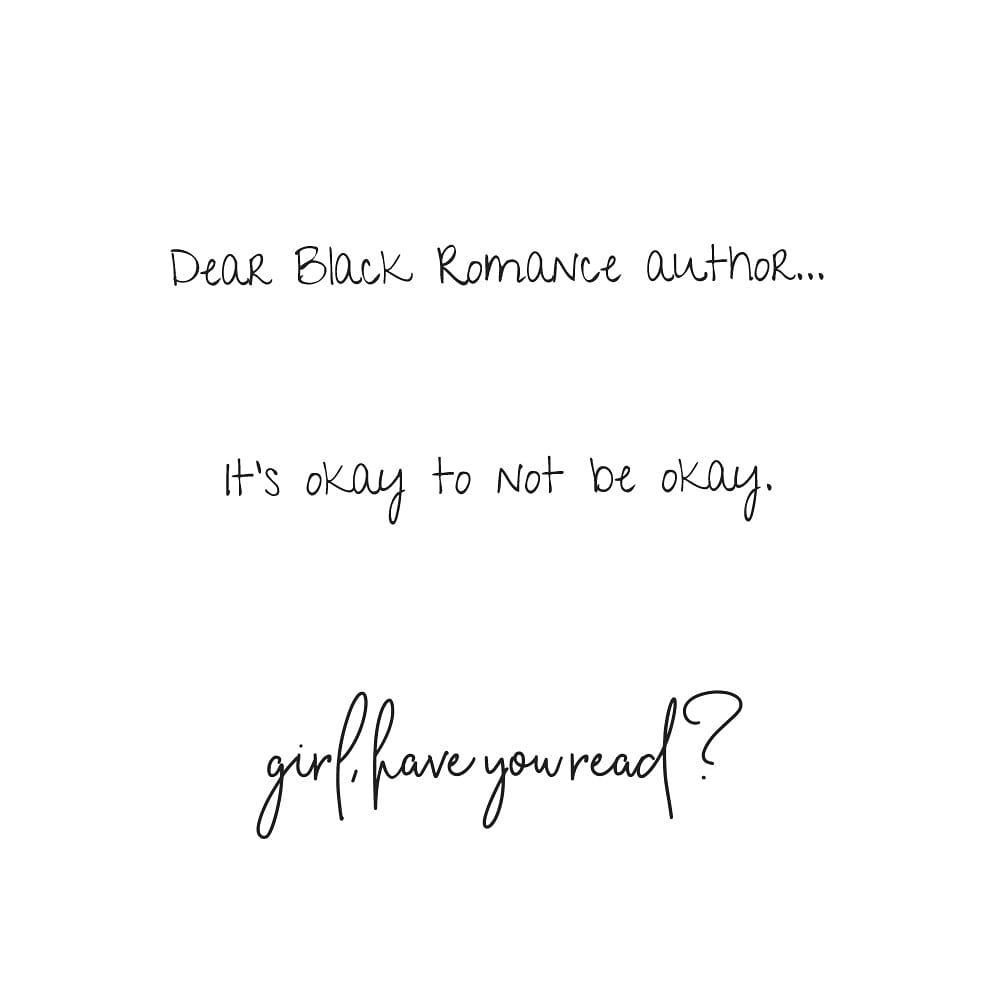 Dear Black Romance author...
It's okay to not be okay.
girl, have you read?